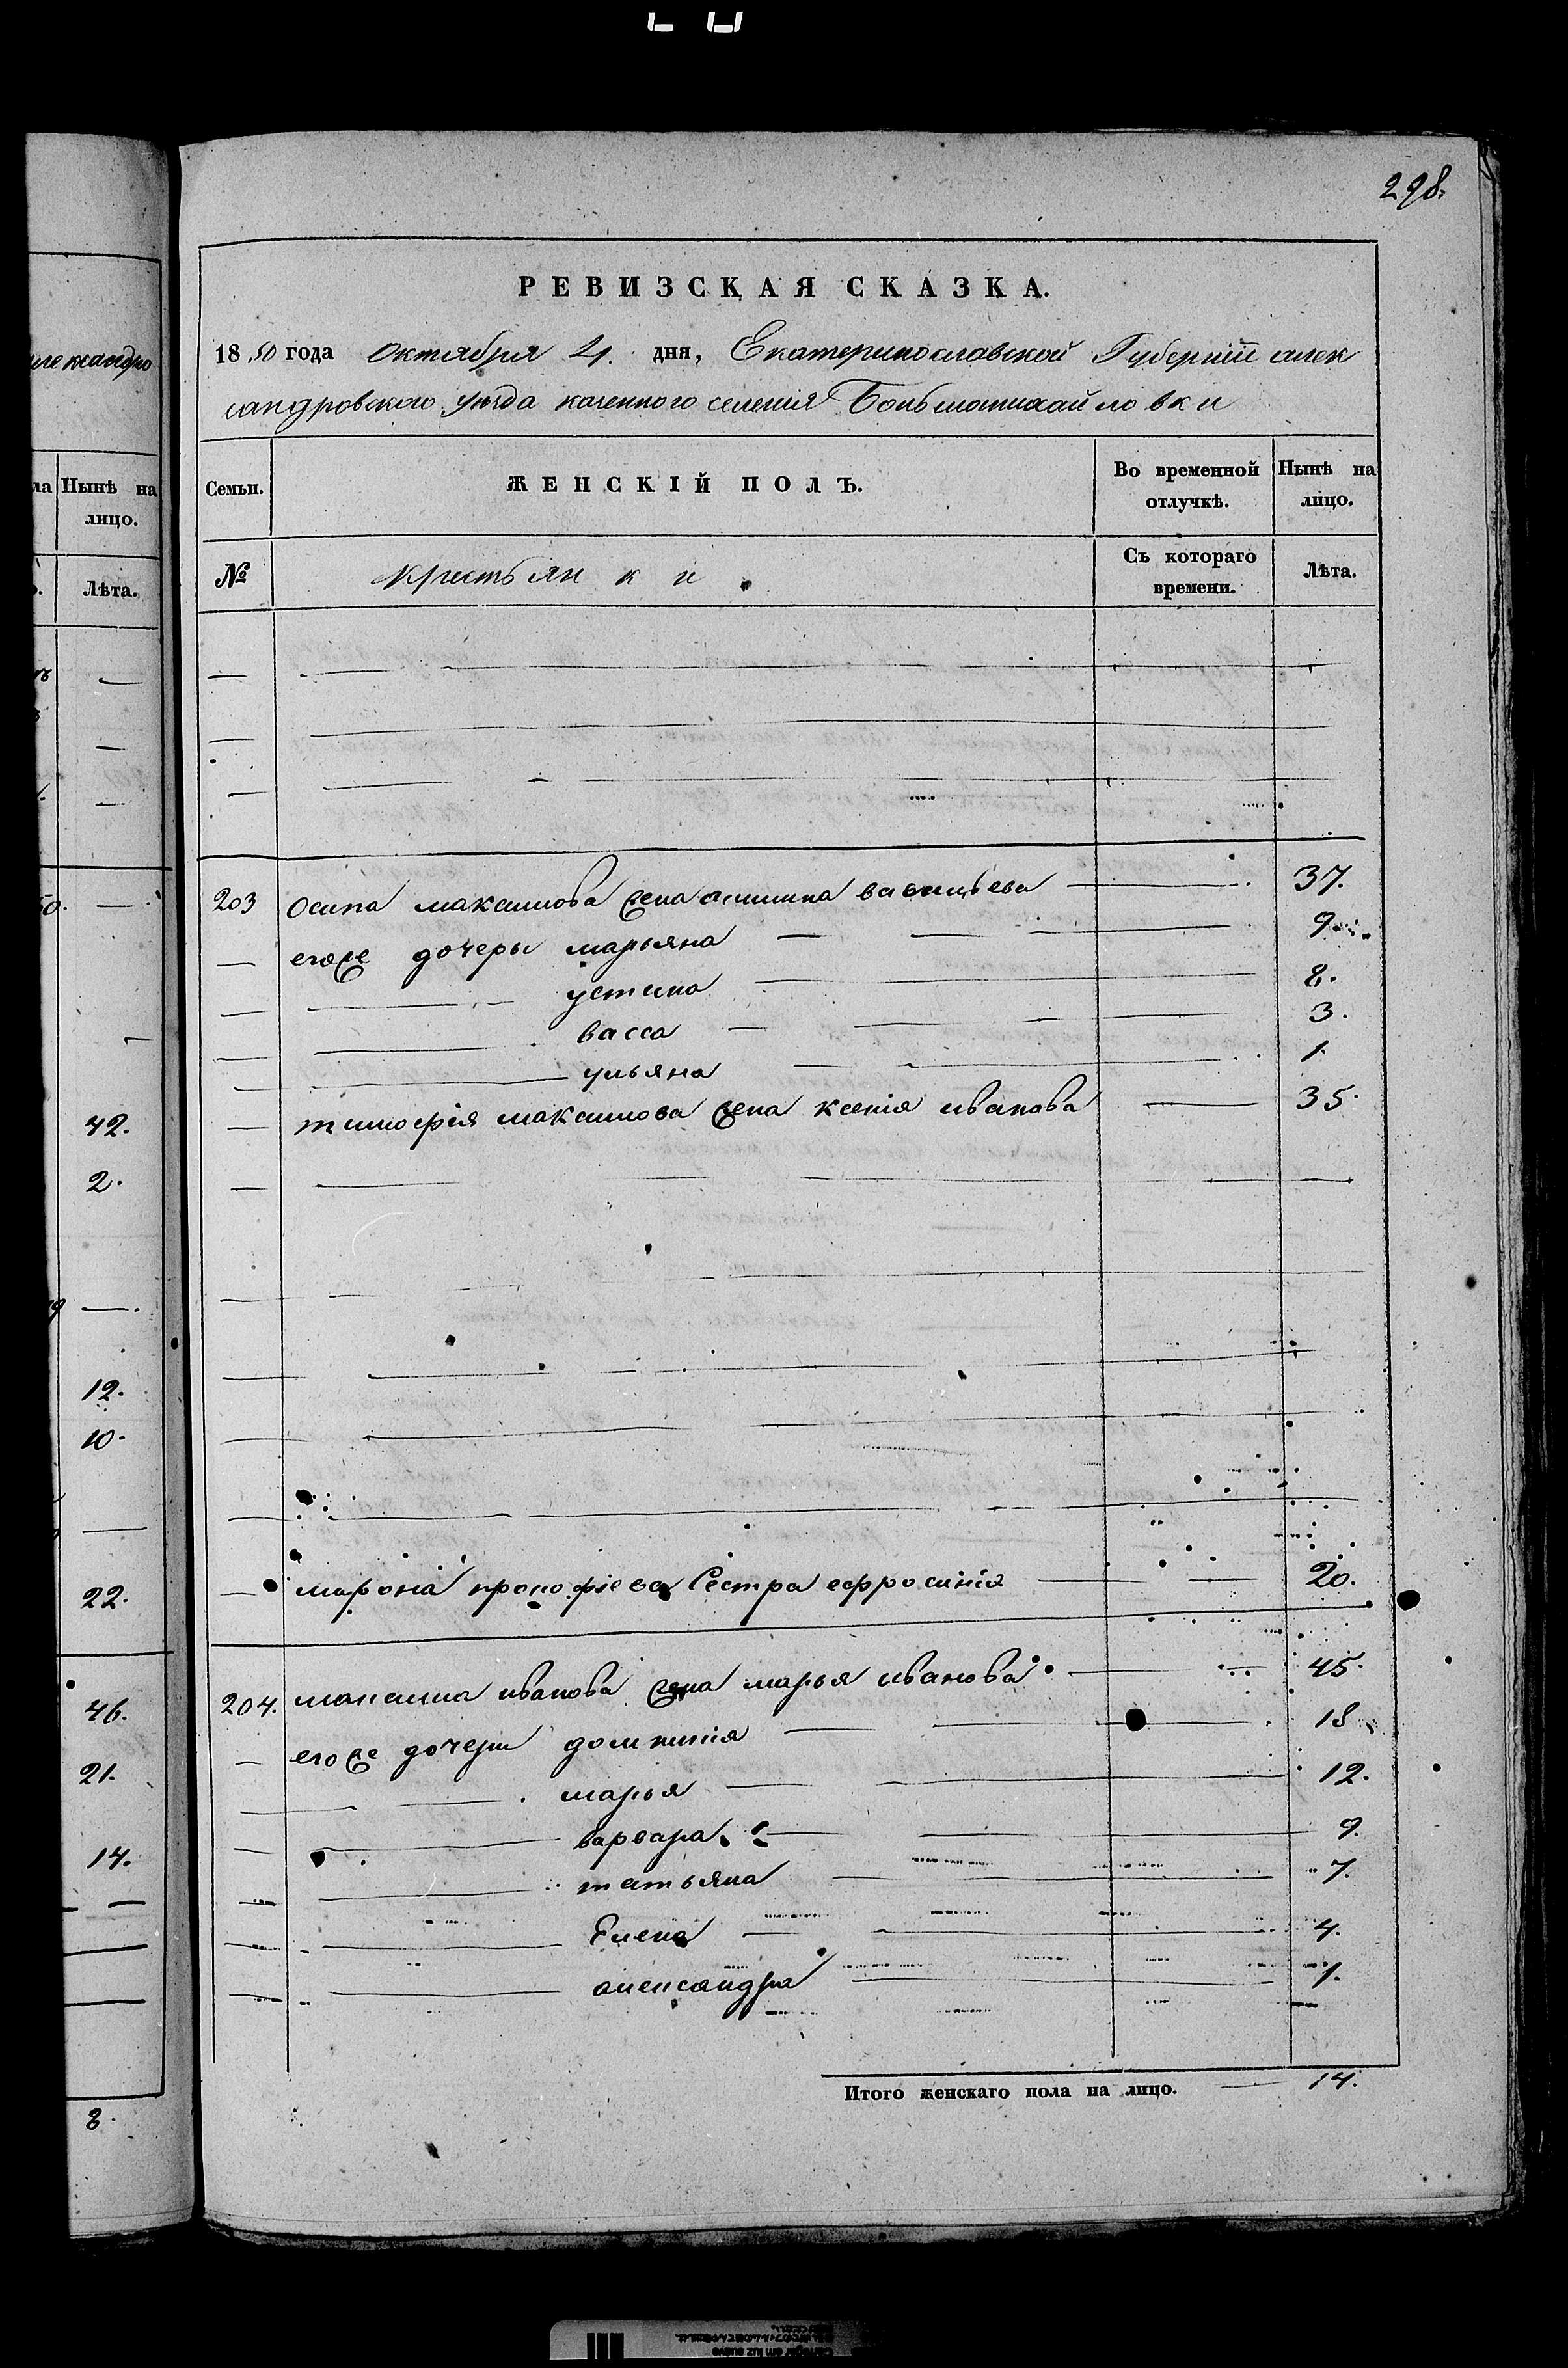 298.
РЕВИЗСКАЯ СКАЗКА.
1850 года октября 4. дня, Екатеринославской Губернии алек
сандровского уезда казенного селения Больмошихайловки
Семьи.
ЖЕНСКІЙ ПОЛЪ.
Во временной отлучкѣ.
Нынѣ на лицо.
№
Крестьянки.
Съ котораго времени.
Лѣта.
203 осипа максимова жена васильева 37.
— егоже дочеры марьяна 9
— устина 8.
— васса 3.
— ульяна 1.
— тимофія максимова жена ксенія иванова 35.
— мирона прокофіева сестра ефросинія 20.
204. максима иванова жена марья иванова 45.
— егоже дочери домникія 18
— марья 12.
— варвара 9.
— татьяна 7.
— Елена 4.
— александра 1.
Итого женскаго пола на лицо. 14.
лександро
ла
Нынѣ на лицо.
Лѣта.
42.
2.
12.
10.
22.
46.
21.
14.
8.